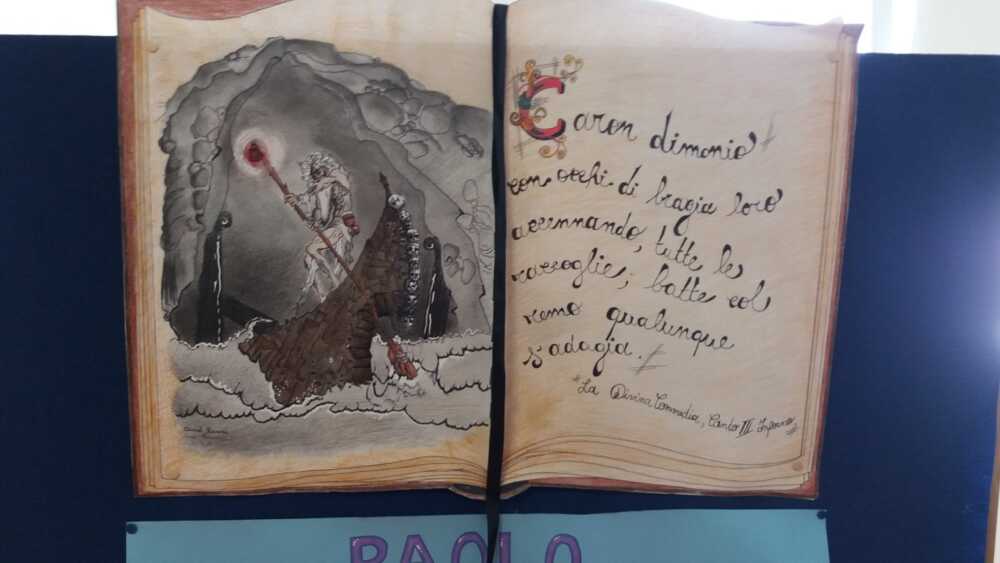 Caron dimonio
con occhi di bragia loro
accennando, tutte le
raccoglie; batte col
remo qualunque
s'adagia.
"La Divina Commedia, Canto III Inferno"
PAOLO